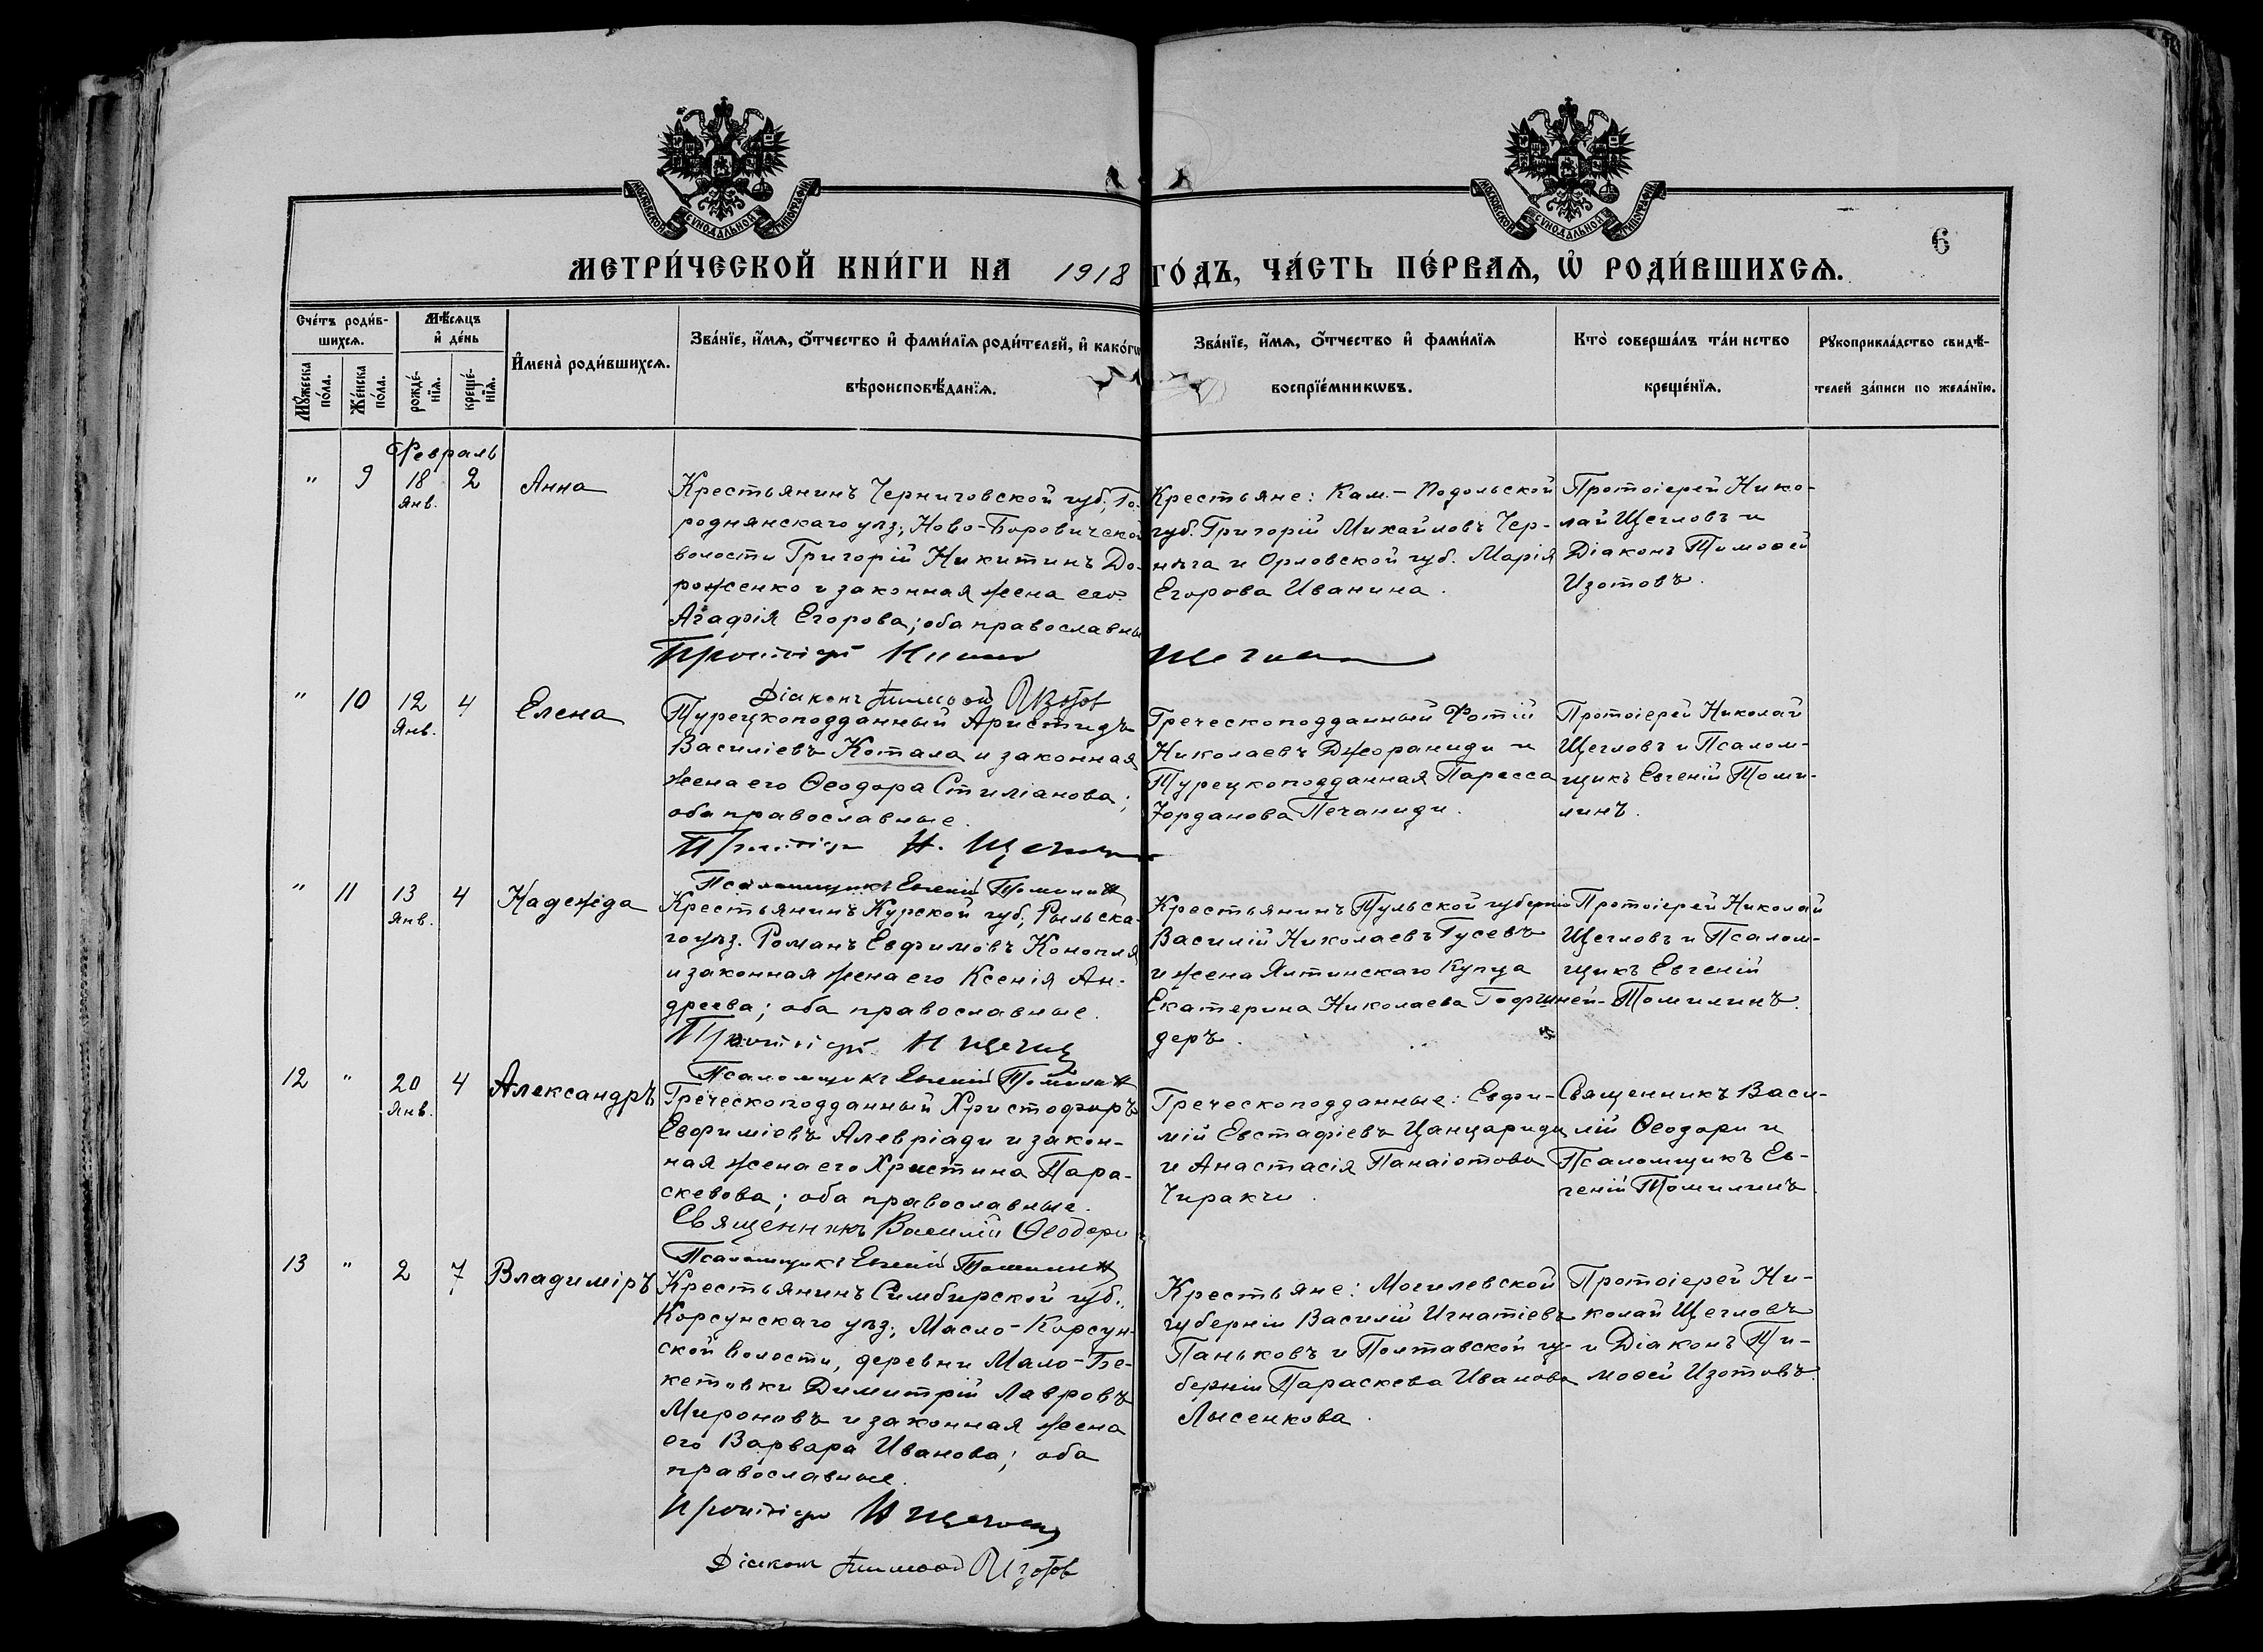 МОСКОВСКОЙ СѴНОДАЛЬНОЙ ТИПОГРАФІИ
МОСКОВСКОЙ СѴНОДАЛЬНОЙ ТИПОГРАФІИ
6
МЕТРИ́ЧЕСКОЙ КНИ́ГИ НА 1918 ГО́ДЪ, ЧА́СТЬ ПЕ́РВАѦ, Ѡ҆ РОДИ́ВШИХСѦ.
Сче́тъ роди́в-
шихсѧ.
Мꙋ́жеска по́ла.
Же́нска по́ла.
Мѣ́сѧцъ
и҆ де́нь
рожде́-
нїѧ.
креще́-
нїѧ.
И҆мена̀ роди́вшихсѧ.
Зва́нїе, и҆́мѧ, ѻ҆́тчество и҆ фами́лїѧ роди́телей, и҆ како́гѡ
вѣроисповѣ́данїѧ.
Зва́нїе, и҆́мѧ, ѻ҆́тчество и҆ фами́лїѧ
воспрїе́мникѡвъ.
Кто̀ соверша́лъ та́инство
креще́нїѧ.
Рꙋкоприкла́дство свидѣ́-
телей за́писи по жела́нїю.
Февраль
" 9 18 2 Анна
Янв.
Крестьянинъ Черниговской губ., Го-
роднянскаго уѣз., Ново-Боровичской
волости Григорій Никитинъ До-
рошенко и законная жена его
Агафія Егорова; оба православны
Крестьяне: Кам.-Подольской
губ. Григорій Михайловъ Чер-
нѣга и Орловской губ. Марія
Егорова Иванина.
Протоіерей Нико-
лай Щегловъ и
Діаконъ Тимоѳей
Изотовъ.
Протоіерей Николай Щегловъ
Діаконъ Тимоѳей Изотов
" 10 12 4 Елена
Янв.
Турецкоподданный Аристидъ
Василіевъ Котала и законная
жена его Ѳеодора Стиліанова;
оба православные.
Греческоподданный Фотій
Николаевъ Джораниди и
Турецкоподданная Паресса
Іорданова Печаниди.
Протоіерей Николай
Щегловъ и Псалом-
щикъ Евгеній Томи-
линъ.
Протоіерей Н. Щегловъ
Псаломщикъ Евгеній Томилинъ
" 11 13 4 Надежда
Янв.
Крестьянинъ Курской губ., Рыльска-
го уѣз. Романъ Евфимовъ Конопля
и законная жена его Ксенія Ан-
дреева; оба православные.
Крестьянинъ Тульской губерніи
Василій Николаевъ Гусевъ
и жена Ялтинскаго Купца
Екатерина Николаева Гофшней-
деръ.
Протоіерей Николай
Щегловъ и Псалом-
щикъ Евгеній
Томилинъ.
Протоіерей Н Щегловъ
Псаломщикъ Евгеній Томилинъ
12 " 20 4 Александръ
Янв.
Греческоподданный Христофоръ
Евфиміевъ Алевріади и закон-
ная жена его Христина Пара-
скевова; оба православные.
Греческоподданные: Евфи-
мій Евстафіевъ Цанцариди
и Анастасія Панаіотова
Чиракчи.
Священникъ Васи-
лій Ѳеодори и
Псаломщикъ Ев-
геній Томилинъ.
Священникъ Василій Ѳеодори
Псаломщикъ Евгеній Томилинъ
13 " 2 7 Владиміръ
Крестьянинъ Симбирской губ.,
Корсунскаго уѣз., Масло-Корсун-
ской волости, деревни Мало-Бе-
кетовки Димитрій Лавровъ
Мироновъ и законная жена
его Варвара Иванова; оба
православные.
Крестьяне: Могилевской
губерніи Василій Игнатіевъ
Паньковъ и Полтавской гу-
берніи Параскева Иванова
Лысенкова.
Протоіерей Ни-
колай Щегловъ
и Діаконъ Ти-
моѳей Изотовъ.
Протоіерей Н Щегловъ
Діаконъ Тимоѳей Изотов